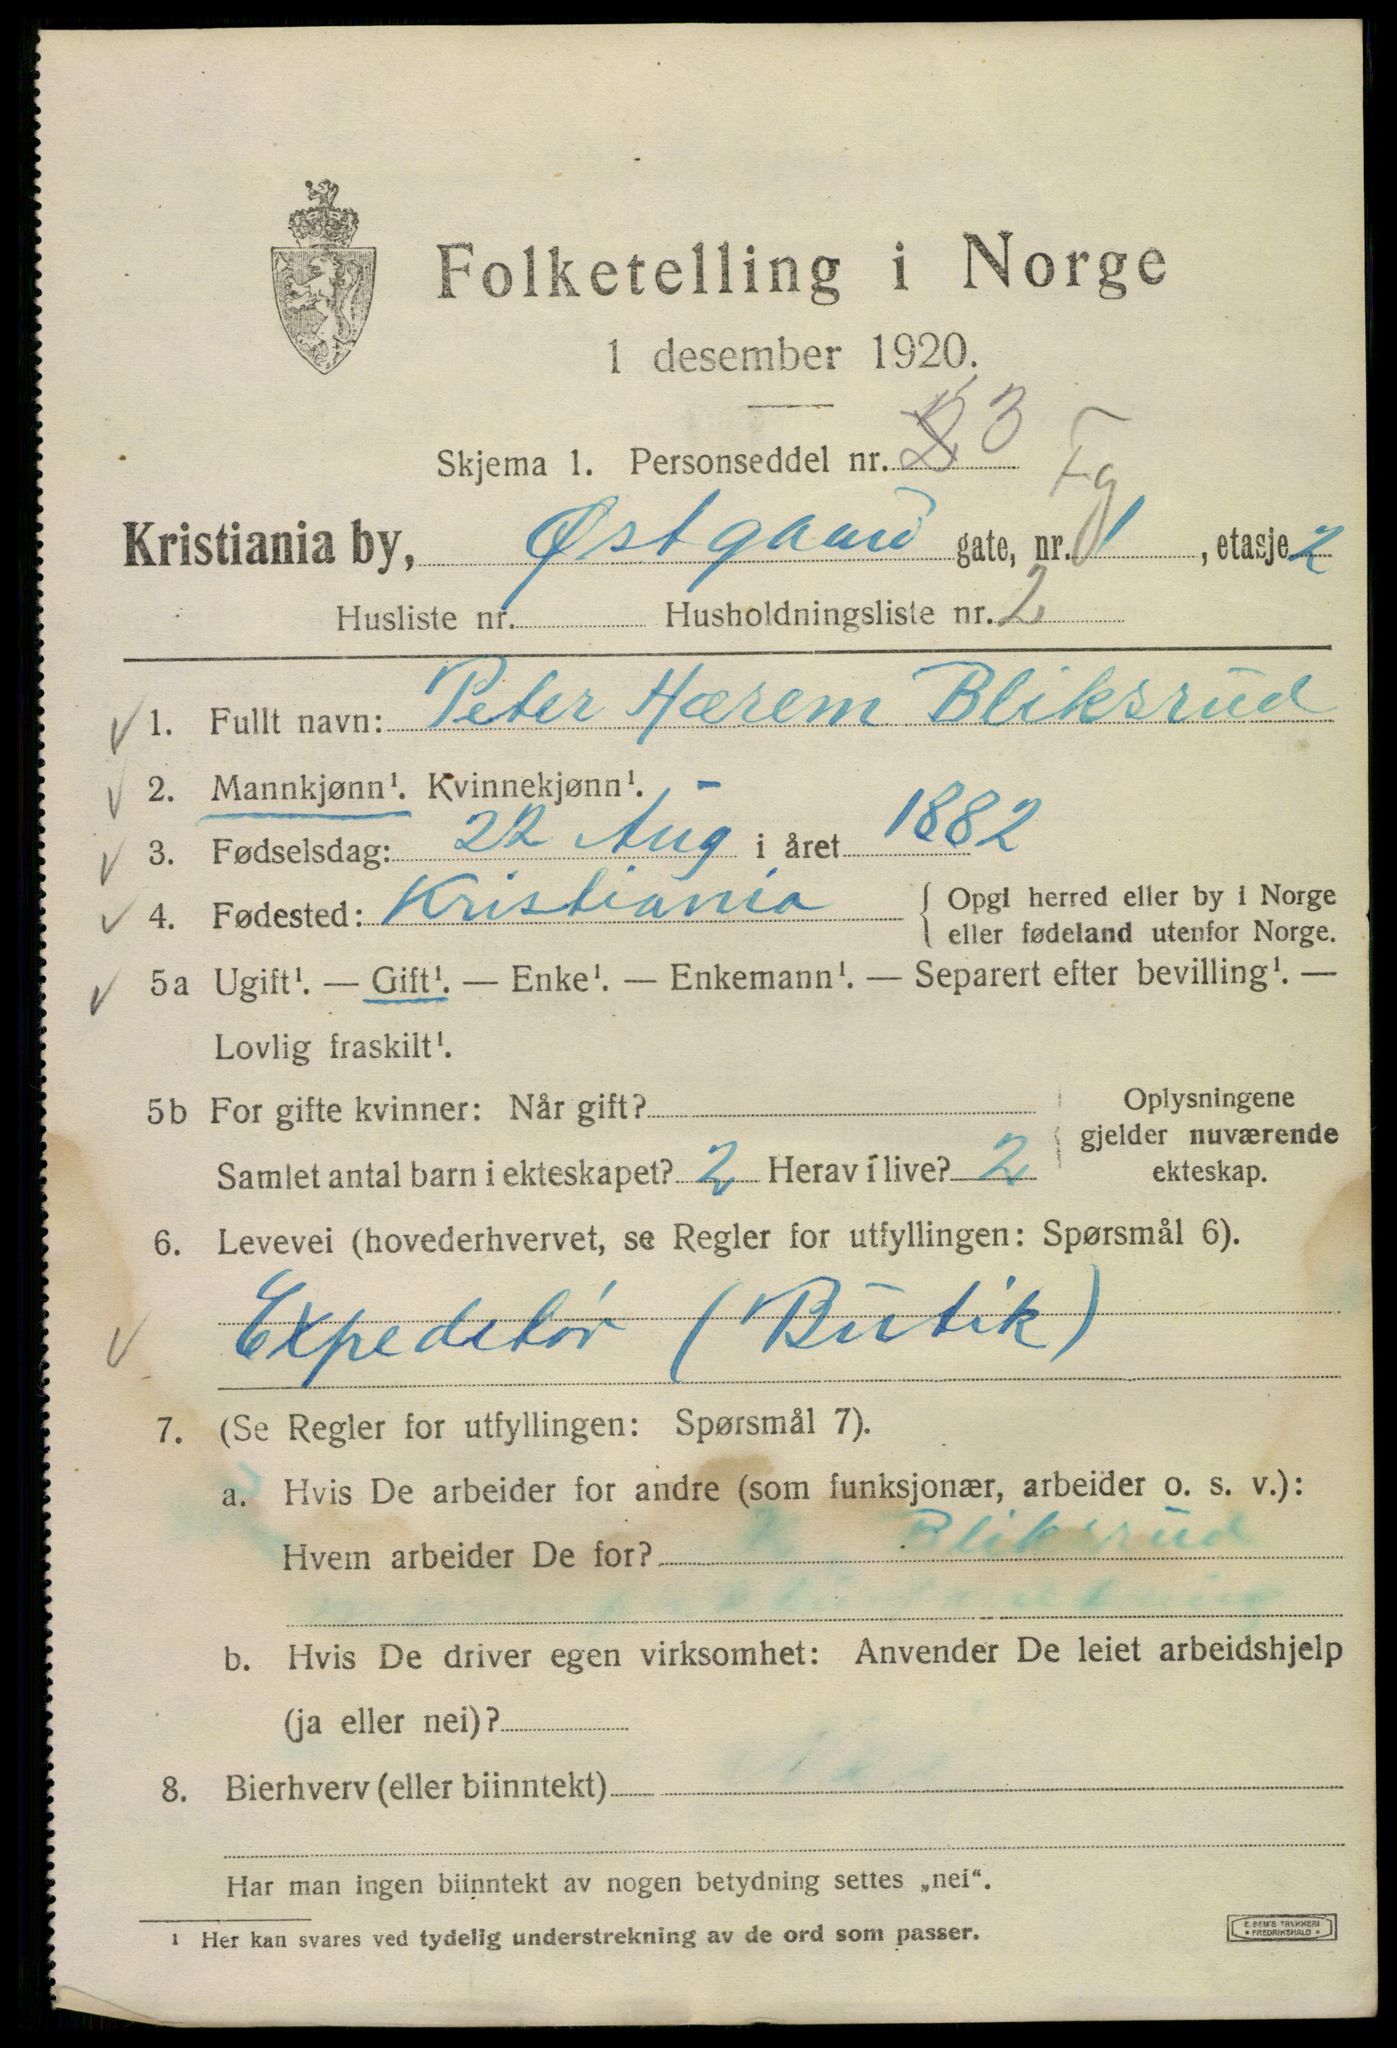 Folketelling i Norge
1 desember 1920.
Skjema 1. Personseddel nr. 3
Fg
Kristiania by, Østgaard gate, nr. 1, etasje 2
Husliste nr. Husholdningsliste nr. 2
1. Fullt navn: Peter Hærem Bliksrud
2. Mannkjønn¹. Kvinnekjønn¹.
3. Fødselsdag: 22 Aug i året 1882
4. Fødested: Kristiania { Opgi herred eller by i Norge
eller fødeland utenfor Norge.
5a Ugift¹. — Gift¹. — Enke¹. — Enkemann¹. — Separert efter bevilling¹. —
Lovlig fraskilt¹.
5b For gifte kvinner: Når gift? Oplysningene
gjelder nuværende
Samlet antal barn i ekteskapet? 2 Herav i live? 2 ekteskap.
6. Levevei (hovederhvervet, se Regler for utfyllingen: Spørsmål 6).
Expeditør (Butik)
7. (Se Regler for utfyllingen: Spørsmål 7).
a. Hvis De arbeider for andre (som funksjonær, arbeider o. s. v.):
Hvem arbeider De for? Bliksrud
b. Hvis De driver egen virksomhet: Anvender De leiet arbeidshjelp
(ja eller nei)?
8. Bierhverv (eller biinntekt) Nei
Har man ingen biinntekt av nogen betydning settes „nei“.
¹ Her kan svares ved tydelig understrekning av de ord som passer.
E. SEM'S TRYKKERI
* FREDRIKSHALD *